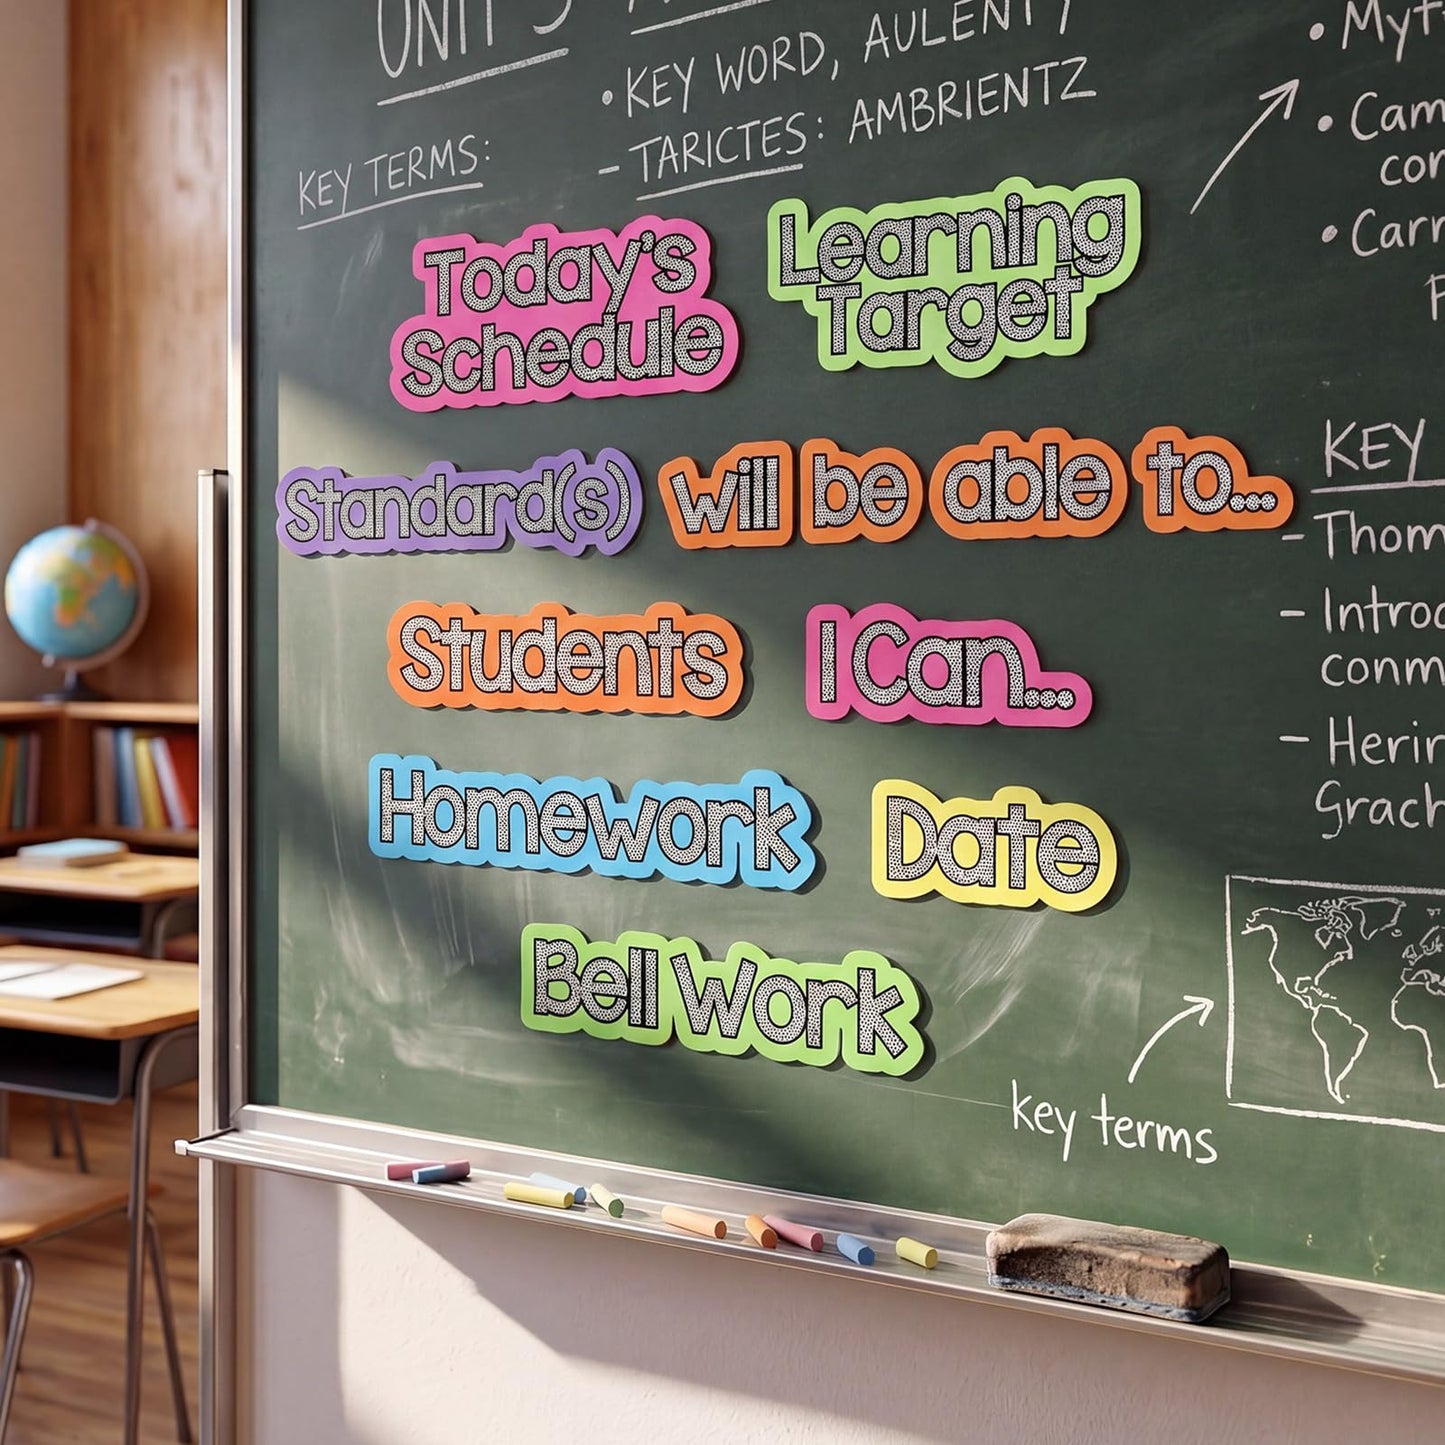 UNIT 5
• KEY WORD, AULENTY
- TARICTES: AMBRIENTZ
KEY TERMS:
• Myt
• Cam
con
• Carr
Today's
Schedule
Learning
Target
Standard(s)
will be able to...
Students
I Can...
Homework
Date
Bell Work
KEY
- Thom
- Introd
conm
- Herin
Grach
key terms